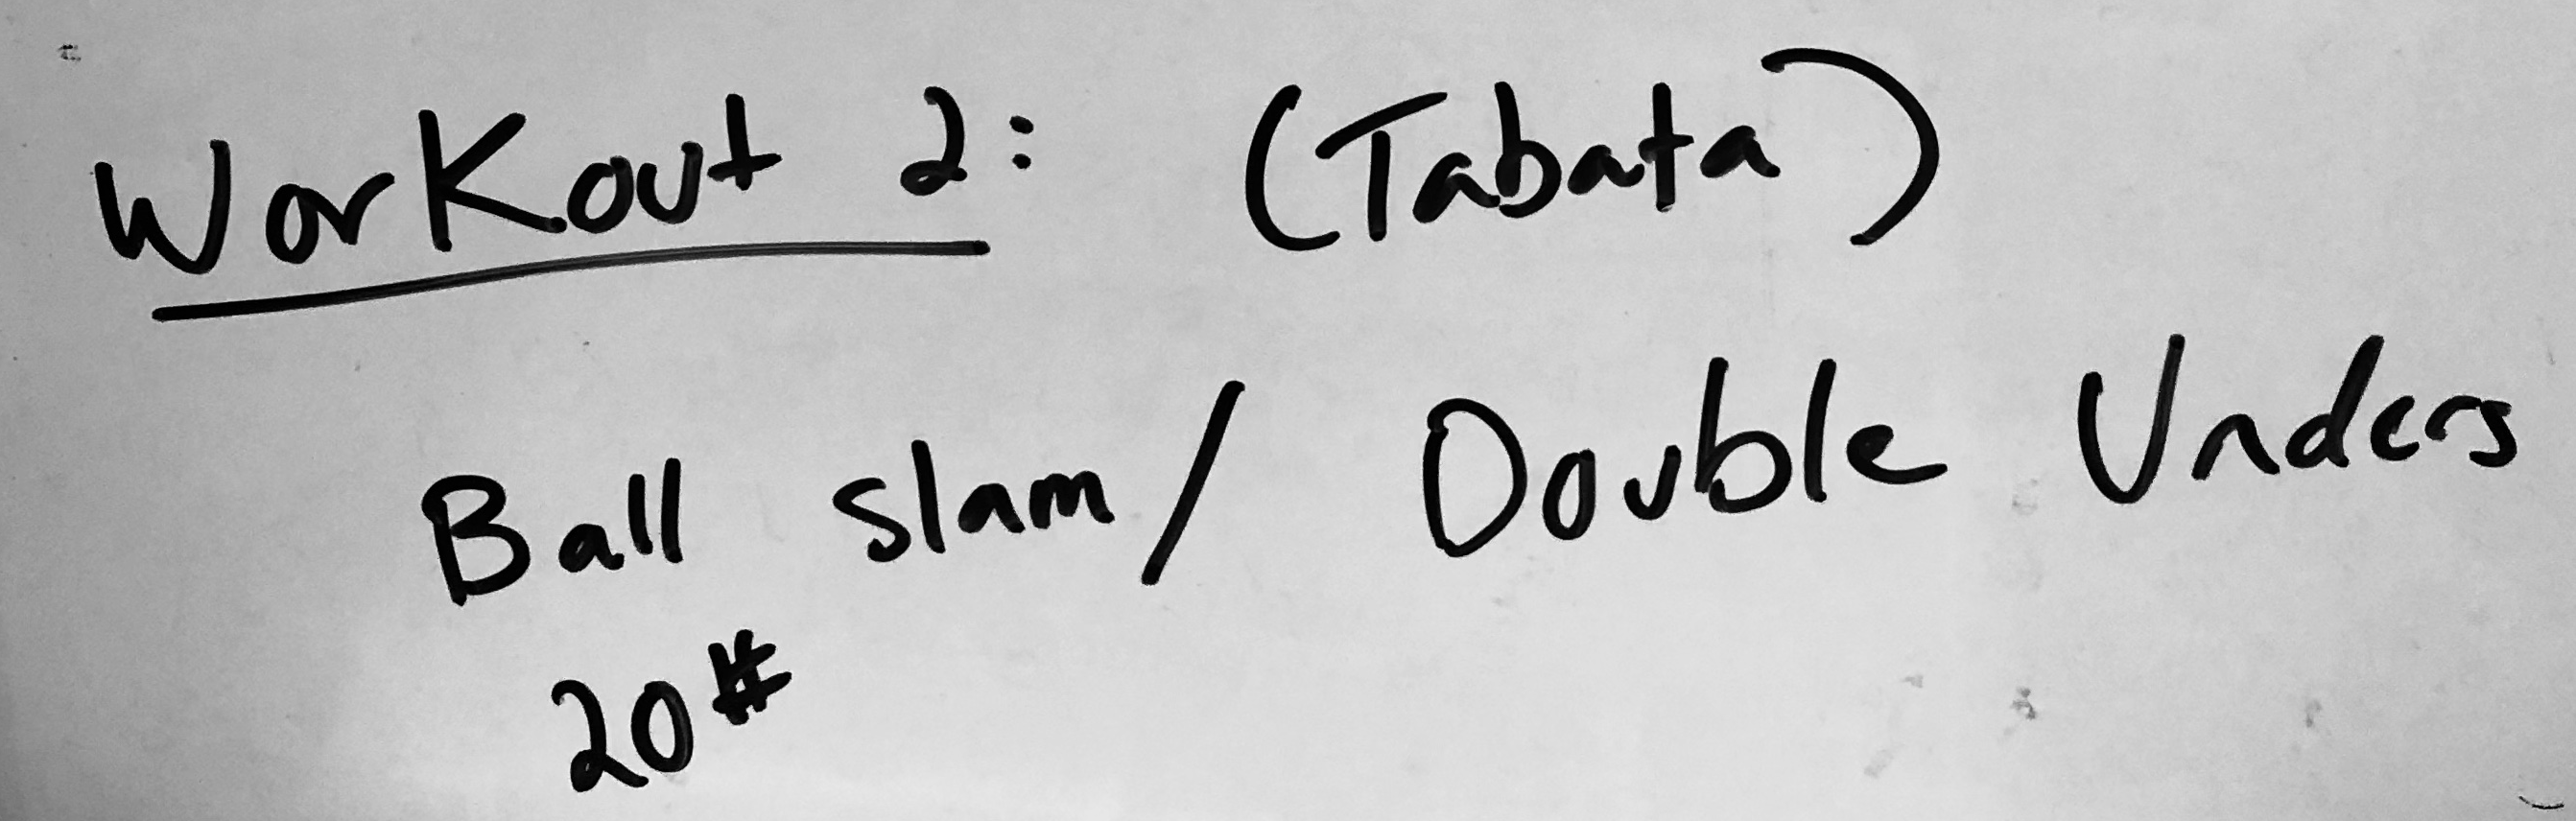 Workout 2: (Tabata)
Ball slam / Double Unders
20#